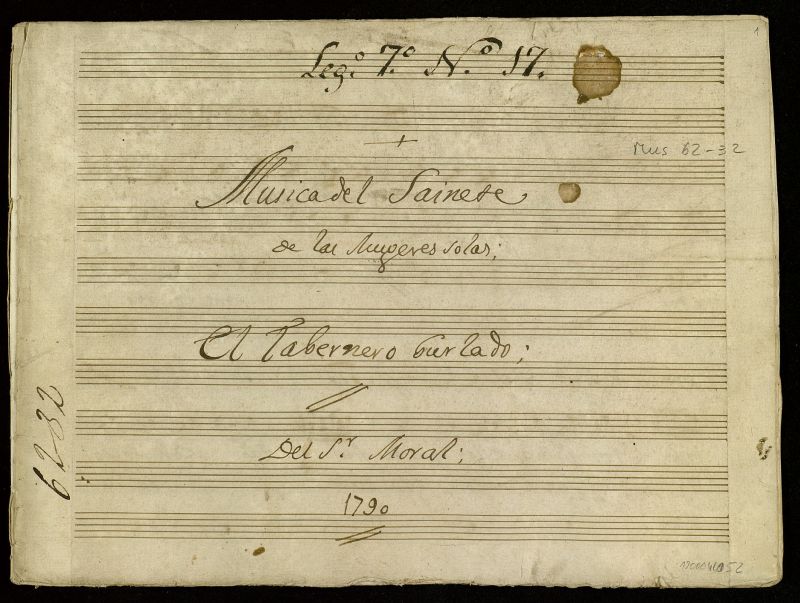 Leg.º 7.º N.º 17.
1
Mus 62-32
Musica del Sainete
de las Mugeres solas;
El Tabernero burlado;
Del S.r Moral;
1790
62-32